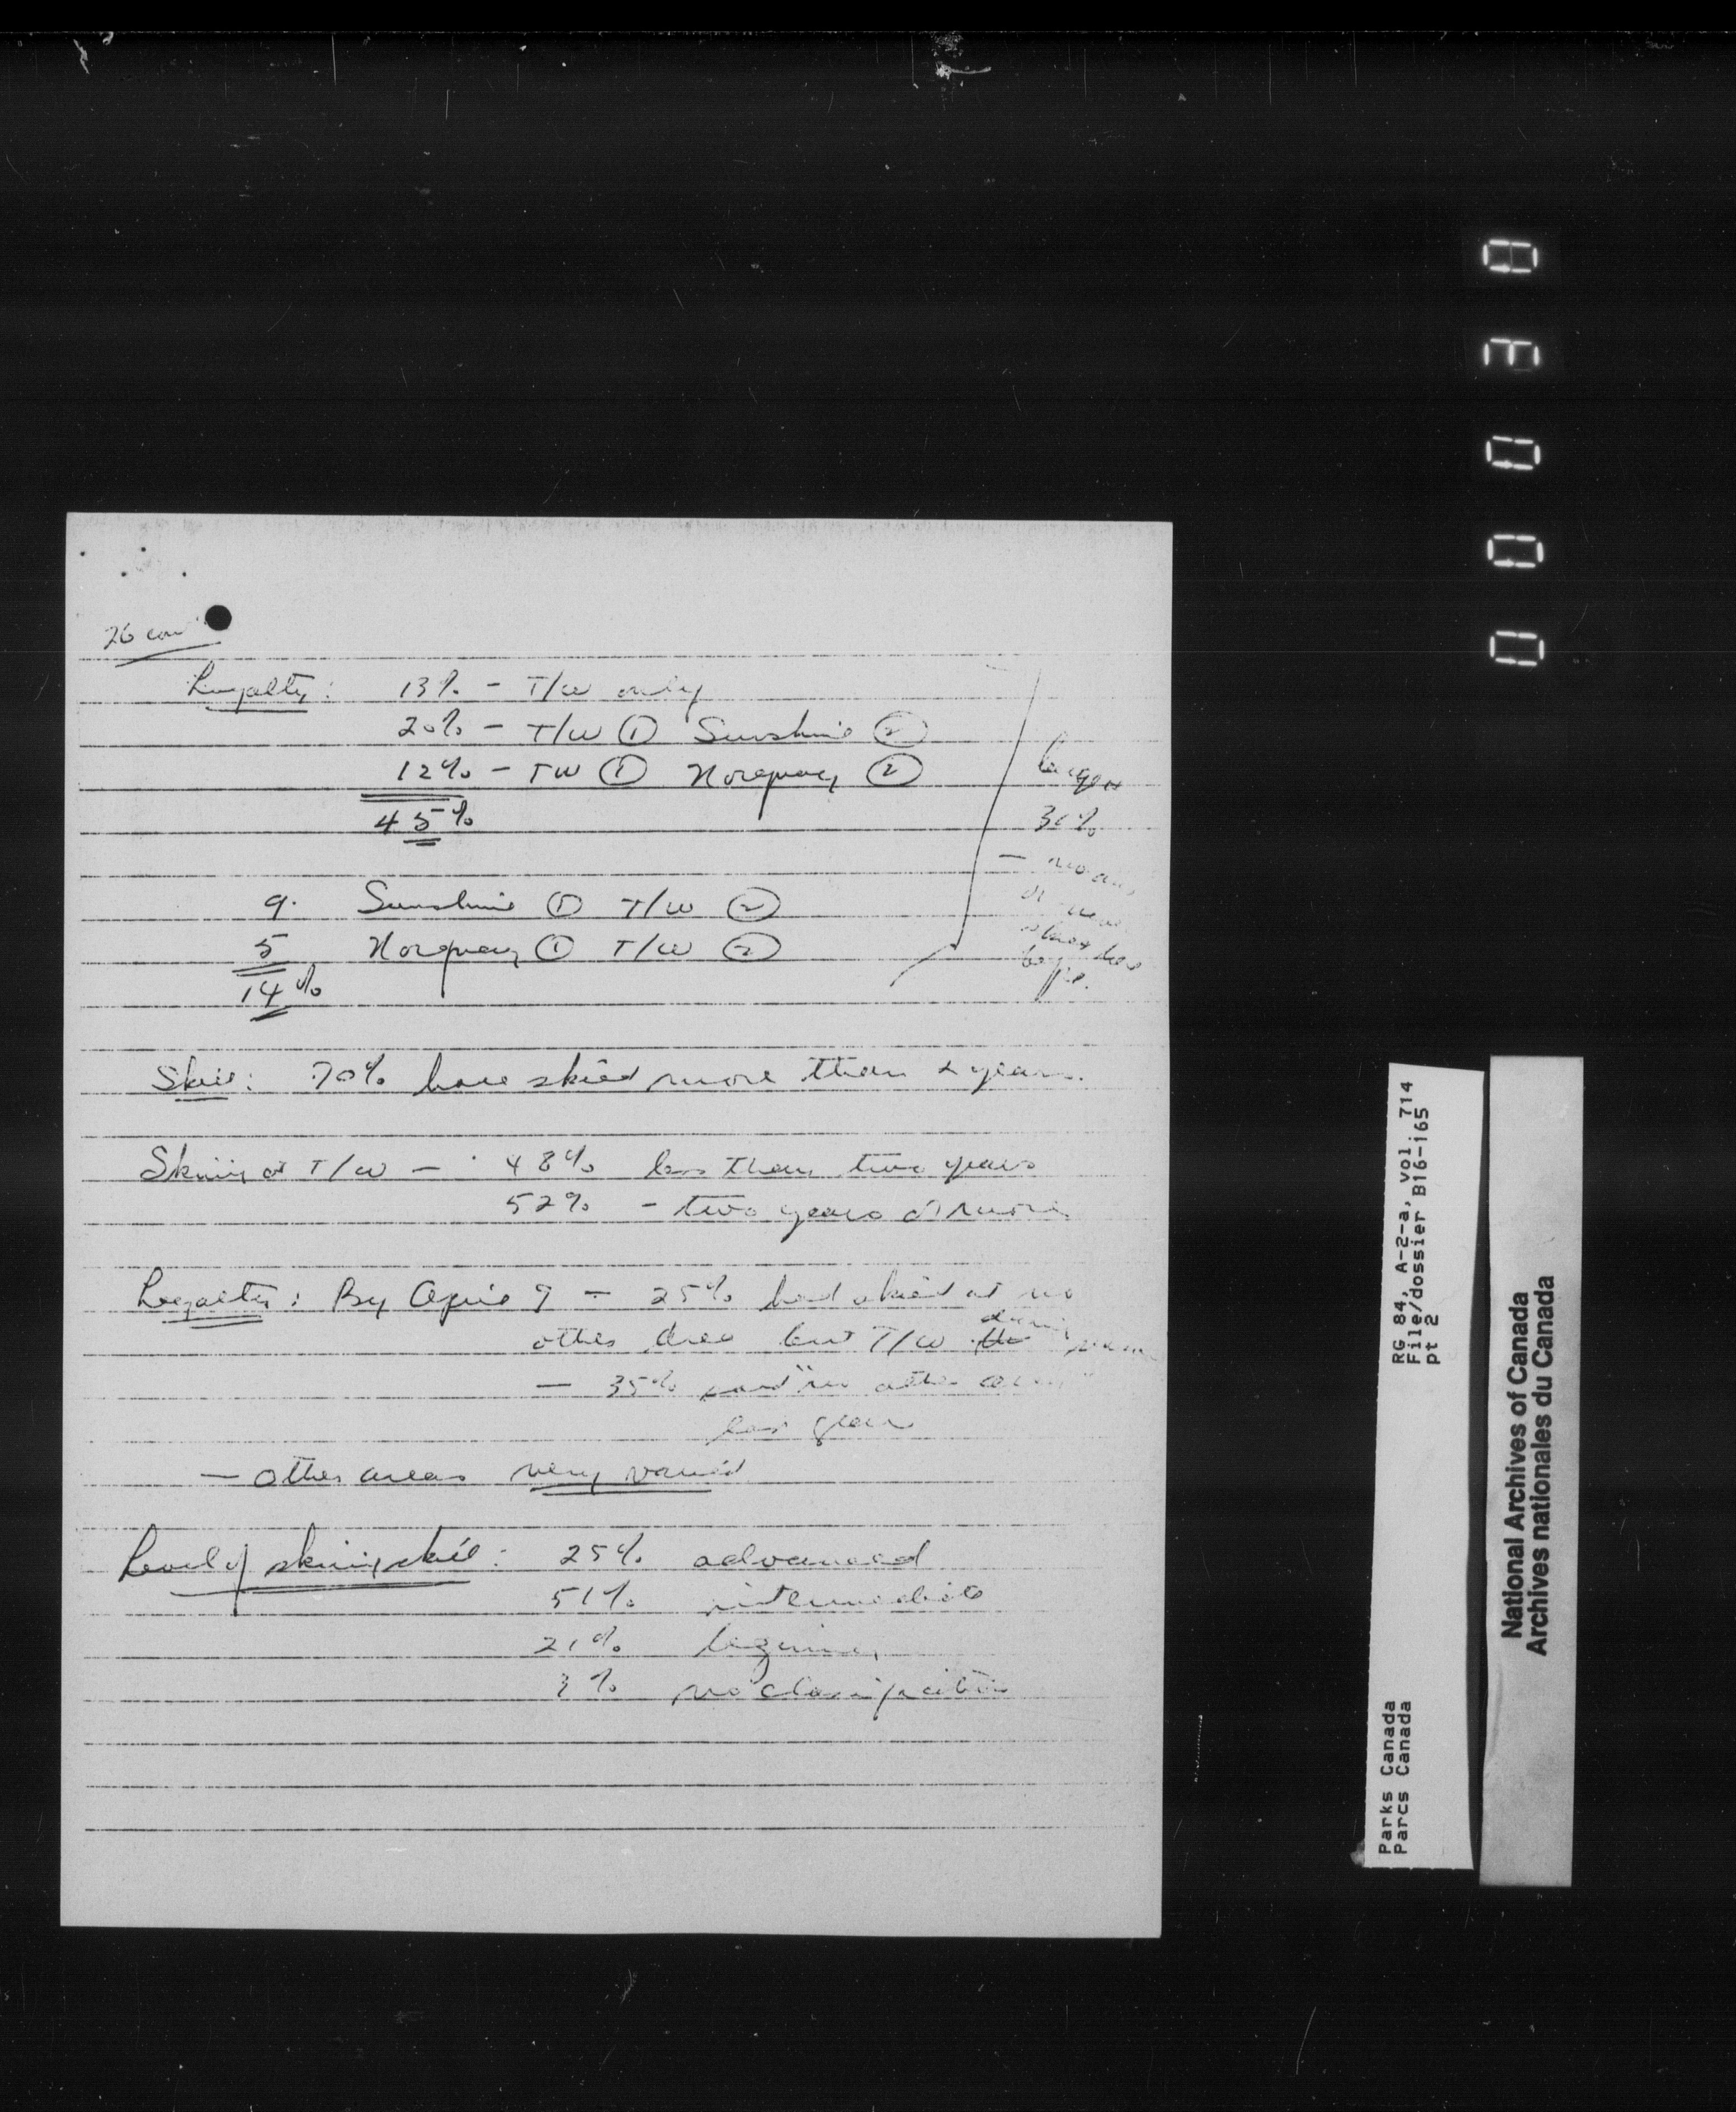 26 con'
Loyalty: 13% - T/W only
20% - T/W ① Sunshine ②
12% - TW ① Norquay ②
45%
9. Sunshine ① T/W ②
5 Norquay ① T/W ②
14%
larger
31%
Skill: 70% have skied more than 2 years.
Skiing at T/W - 48% less than two years
52% - two years or more
Loyalty: By April 9 - 25% had skied at no
other area but T/W during
- 35% said "no other area"
last year
- other areas very varied
Level of skiing skill: 25% advanced
51% intermediate
21% beginner
3% no classification
00030
RG 84, A-2-a, vol. 714
File/dossier B16-165
pt 2
Parks Canada
Parcs Canada
National Archives of Canada
Archives nationales du Canada